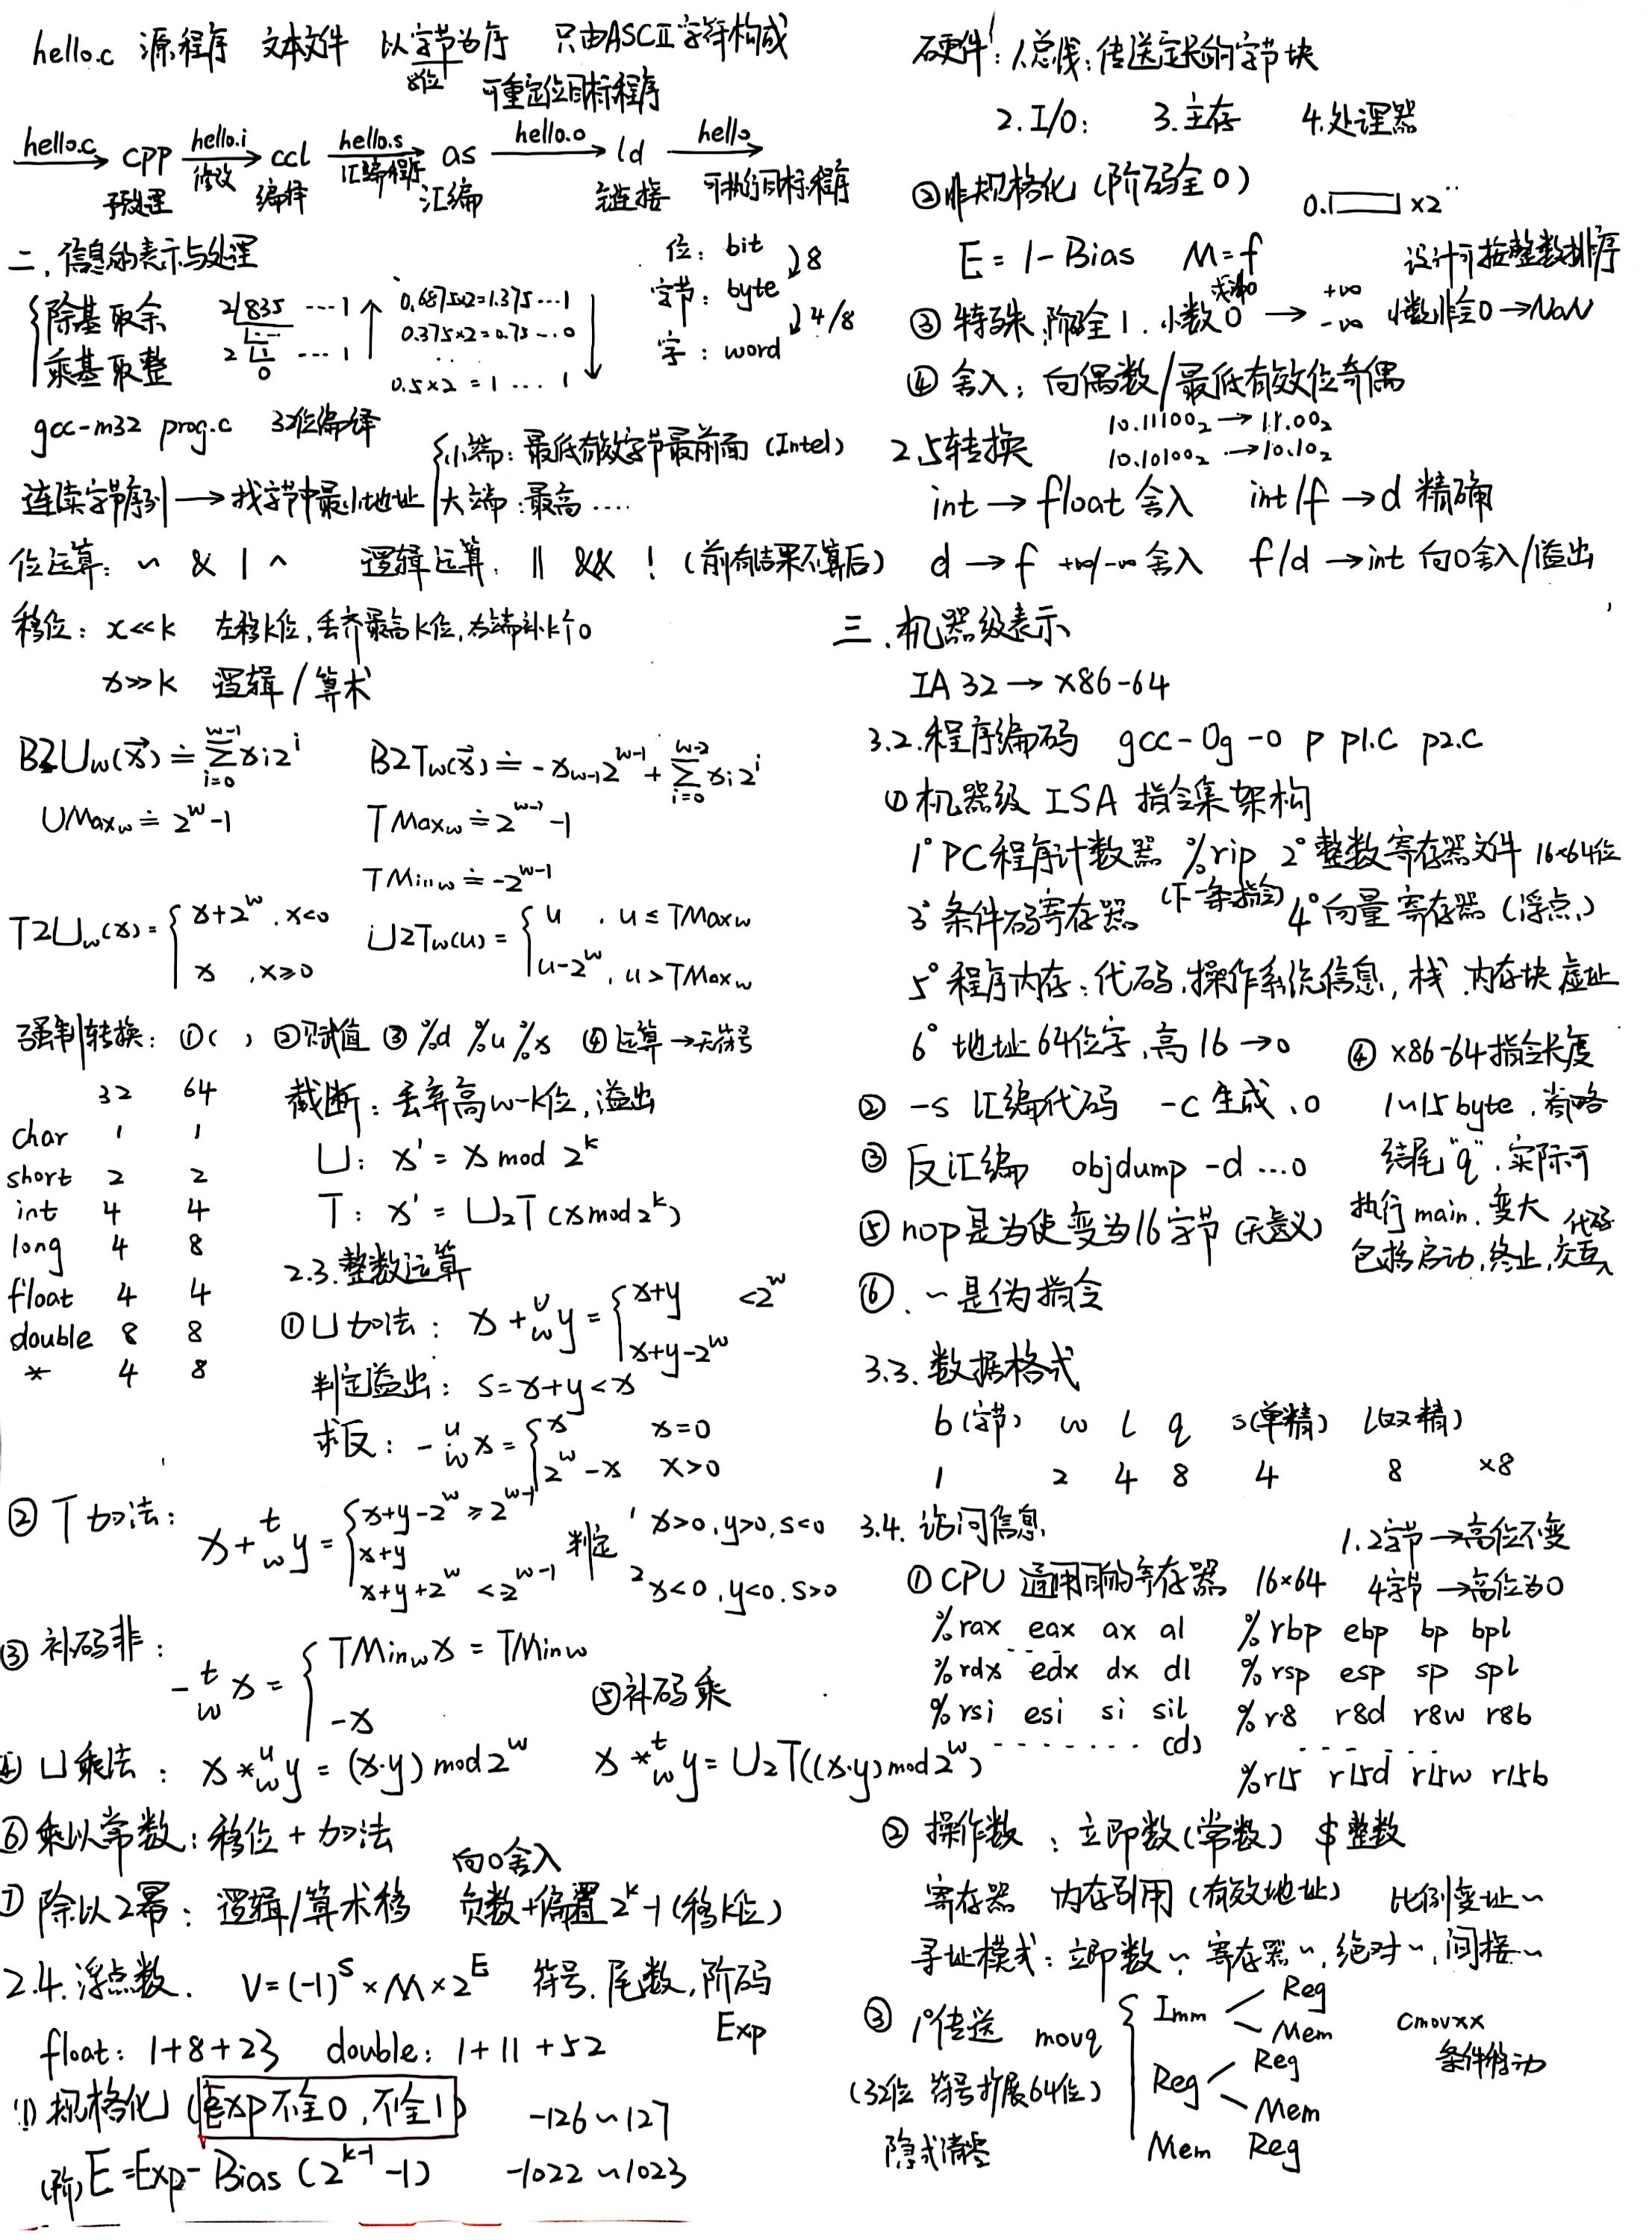 hello.c 源程序 文本文件 以字节为序 只由ASCII字符构成
8位 可重定位目标程序
hello.c → cpp hello.i → ccl hello.s → as hello.o → ld hello →
预处理 修改 编译 汇编程序 汇编 链接 可执行目标程序
二. 信息的表示与处理
位: bit
字节: byte 8
字: word 4/8
除基取余 2|835 … 1 0.6875×2=1.375…1
0.375×2=0.75…0
乘基取整 2 … 1
0 0.5×2=1…1
gcc-m32 prog.c 32位编译
连续字节序列 → 找字节中最小地址
小端: 最低有效字节最前面 (Intel)
大端: 最高….
位运算: ~ & | ^ 逻辑运算: || && ! (前有结果不算后)
移位: x<<k 左移k位, 丢弃最高k位, 右端补k个0
x>>k 逻辑/算术
B2Uw(x⃗) ≐ Σ_{i=0}^{w-1} xi2^i B2Tw(x⃗) ≐ -x_{w-1}2^{w-1} + Σ_{i=0}^{w-2} xi2^i
UMaxw ≐ 2^w-1 TMaxw ≐ 2^{w-1}-1
TMinw ≐ -2^{w-1}
T2Uw(x) = { x+2^w, x<0
x, x≥0
U2Tw(u) = { u, u≤TMaxw
u-2^w, u>TMaxw
强制转换: ①( ) ②赋值 ③%d %u %x ④运算→无符号
32 64
char 1 1
short 2 2
int 4 4
long 4 8
float 4 4
double 8 8
* 4 8
截断: 丢弃高w-k位, 溢出
U: x' = x mod 2^k
T: x' = U2T(x mod 2^k)
2.3. 整数运算
① U加法: x +^u_w y = { x+y <2^w
x+y-2^w
判定溢出: s=x+y<x
求反: -^u_w x = { x x=0
2^w-x x>0
② T加法: x +^t_w y = { x+y-2^w ≥2^{w-1}
x+y
x+y+2^w <2^{w-1}
判定 1 x>0, y>0, s<0
2 x<0, y<0, s>0
③ 补码非: -^t_w x = { TMinw x = TMinw
-x
④ U乘法: x *^u_w y = (x·y) mod 2^w
⑤补码乘
x *^t_w y = U2T((x·y) mod 2^w)
⑥ 乘以常数: 移位+加法
⑦ 除以2幂: 逻辑/算术移 负数+偏置2^k-1(移k位)
向0舍入
2.4. 浮点数. V=(-1)^S×M×2^E 符号. 尾数, 阶码
Exp
float: 1+8+23 double: 1+11+52
① 规格化 (Exp不全0, 不全1) -126~127
(阶) E=Exp-Bias(2^{k-1}-1) -1022~1023
硬件: 1.总线: 传送定长的字节块
2. I/O: 3. 主存 4. 处理器
② 非规格化 (阶码全0) 0.□×2¨
E = 1-Bias M=f 设计可按整数排序
③ 特殊, 阶码全1. 小数0 → +∞ -∞ 小数非全0→NaN
④ 舍入: 向偶数/最低有效位奇偶
10.11100₂ → 11.00₂
10.10100₂ → 10.10₂
2.5转换
int → float 舍入 int/f → d 精确
d → f +∞/-∞ 舍入 f/d → int 向0舍入/溢出
三. 机器级表示
IA32 → x86-64
3.2. 程序编码 gcc-Og -o p p1.c p2.c
① 机器级 ISA 指令集架构
1° PC程序计数器 %rip 2° 整数寄存器文件 16×64位
(下一条指令)
3° 条件码寄存器 4° 向量寄存器 (浮点)
5° 程序内存: 代码, 操作系统信息, 栈, 内存块 虚址
6° 地址64位字, 高16→0
② -s 汇编代码 -c 生成.o
③ 反汇编 objdump -d …o
④ x86-64指令长度
1~15 byte, 省略
结尾“q”, 实际可
执行main. 变大
包括启动, 终止, 交互代码
⑤ nop是为使变为16字节 (无意义)
⑥ . ~是伪指令
3.3. 数据格式
b(字节) w l q s(单精) l(双精)
1 2 4 8 4 8 ×8
3.4. 访问信息
1.2字节→高位不变
① CPU 通用目的寄存器 16×64 4字节→高位为0
%rax eax ax al %rbp ebp bp bpl
%rdx edx dx dl %rsp esp sp spl
%rsi esi si sil %r8 r8d r8w r8b
(d)
%r15 r15d r15w r15b
② 操作数: 立即数(常数) $整数
寄存器 内存引用 (有效地址) 比例变址~
寻址模式: 立即数~, 寄存器~, 绝对~, 间接~
③ 1°传送 movq { Imm Reg
Mem
(32位 符号扩展64位) Reg Reg
Mem
隐式清零 Mem Reg
cmovxx
条件传动